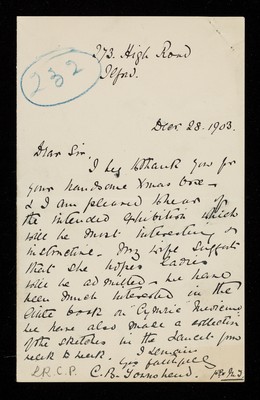 273. High Road
Ilford.
232
Decr 28. 1903.
Dear Sir
I beg to thank you for
your handsome Xmas box -
& I am pleased to hear of
the intended exhibition which
will be most interesting &
instructive. My wife suggests
that she hopes Ladies
will be admitted - we have
been much interested in the
little book on Cymric Medicine
we have also made a collection
of the sketches in the Lancet from
week to week. I remain
yrs faithfully
C. B. Townshend.
L.R.C.P.